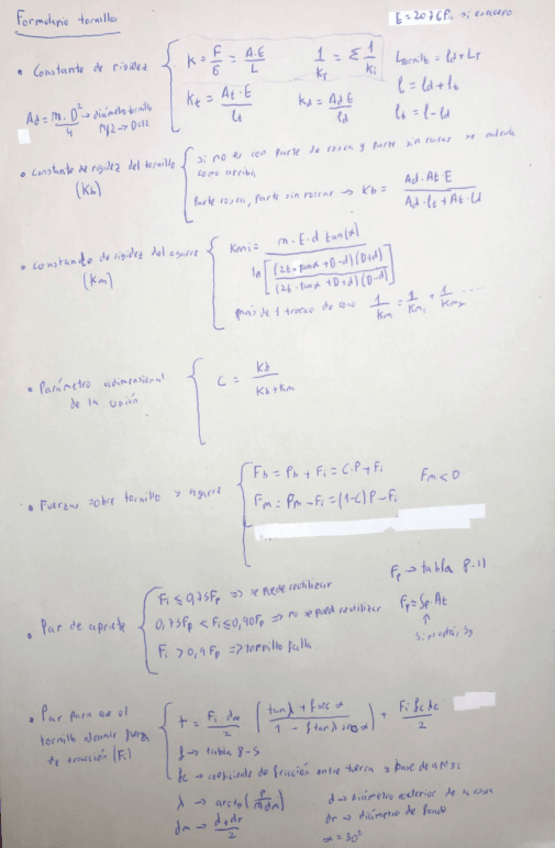 Formulario tornillos
E = 207 GPa si es acero
• Constante de rigidez
K = F/δ = A·E/L
1/Kt = Σ 1/Ki
Ltornillo = ld + Lt
Kt = At·E/lt
Kd = Ad E/ld
l = ld + lt
lt = l - ld
Ad = π·D²/4 → diámetro tornillo
M12 → D=12
• Constante de rigidez del tornillo
(Kb)
si no es con parte de rosca y parte sin roscar se calcula
como arriba
Parte rosca, parte sin roscar → Kb = Ad·At·E / Ad·lt + At·ld
• Constante de rigidez del agarre
(Km)
Kmi = π·E·d tan(α) / ln [ (2t·tanα + D-d)(D+d) / (2t·tanα + D+d)(D-d) ]
más de 1 tronco de cono 1/Km = 1/Km1 + 1/Km2 ....
• Parámetro adimensional
de la unión
C = Kb / Kb+Km
• Fuerzas sobre tornillo y agarre
Fb = Pb + Fi = C·P + Fi
Fm = Pm - Fi = (1-C)P - Fi
Fm < 0
Fp → tabla 8-11
• Par de apriete
Fi ≤ 0,75Fp => se puede reutilizar
0,75Fp < Fi ≤ 0,90Fp => no se puede reutilizar
Fi > 0,9Fp => tornillo falla
Fp = Sp·At
↑
• Par para que el
tornillo alcance fuerza
de tracción (Fi)
T = Fi dm/2 ( tanλ + f sec α / 1 - f tanλ sec α ) + Fi fc dc/2
f → tabla 8-5
fc → coeficiente de fricción entre tuerca y base de apoyo
λ → arctg (p/π dm)
dm → d+dr/2
d → diámetro exterior de la rosca
dr → diámetro de fondo
α = 30º